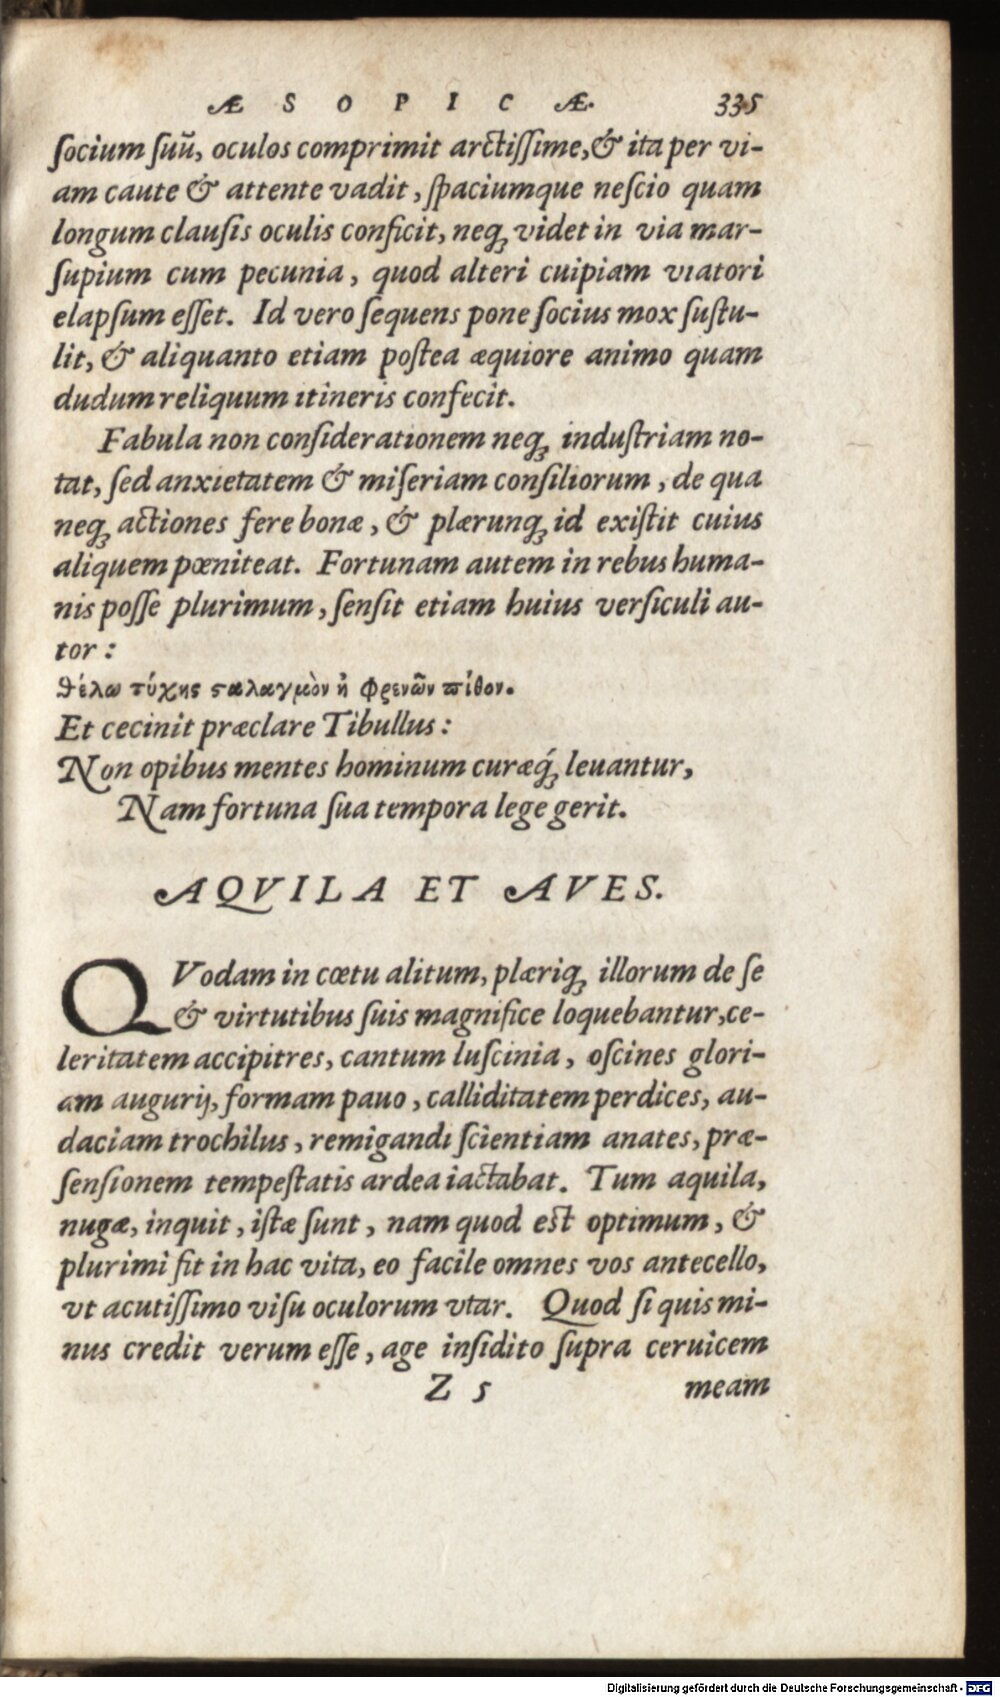 ÆSOPICÆ. 335
ſocium ſuũ, oculos comprimit arctiſſime, & ita per vi-
am caute & attente vadit, ſpaciumque neſcio quam
longum clauſis oculis conficit, neq; videt in via mar-
ſupium cum pecunia, quod alteri cuipiam viatori
elapſum eſſet. Id vero ſequens pone ſocius mox ſuſtu-
lit, & aliquanto etiam poſtea æquiore animo quam
dudum reliquum itineris confecit.
Fabula non conſiderationem neq; induſtriam no-
tat, ſed anxietatem & miſeriam conſiliorum, de qua
neq; actiones fere bonæ, & plærunq; id exiſtit cuius
aliquem pœniteat. Fortunam autem in rebus huma-
nis poſſe plurimum, ſenſit etiam huius verſiculi au-
tor:
θέλω τύχης ϛαλαγμὸν ἢ φρενῶν πίθον.
Et cecinit præclare Tibullus:
Non opibus mentes hominum curæq́; leuantur,
Nam fortuna ſua tempora lege gerit.
AQVILA ET AVES.
QVodam in cœtu alitum, plæriq; illorum de ſe
& virtutibus ſuis magnifice loquebantur, ce-
leritatem accipitres, cantum luſcinia, oſcines glori-
am augurij, formam pauo, calliditatem perdices, au-
daciam trochilus, remigandi ſcientiam anates, præ-
ſenſionem tempeſtatis ardea iactabat. Tum aquila,
nugæ, inquit, iſtæ ſunt, nam quod eſt optimum, &
plurimi fit in hac vita, eo facile omnes vos antecello,
vt acutiſſimo viſu oculorum vtar. Quod ſi quis mi-
nus credit verum eſſe, age inſidito ſupra ceruicem
Z 5 meam
Digitalisierung gefördert durch die Deutsche Forschungsgemeinschaft - DFG